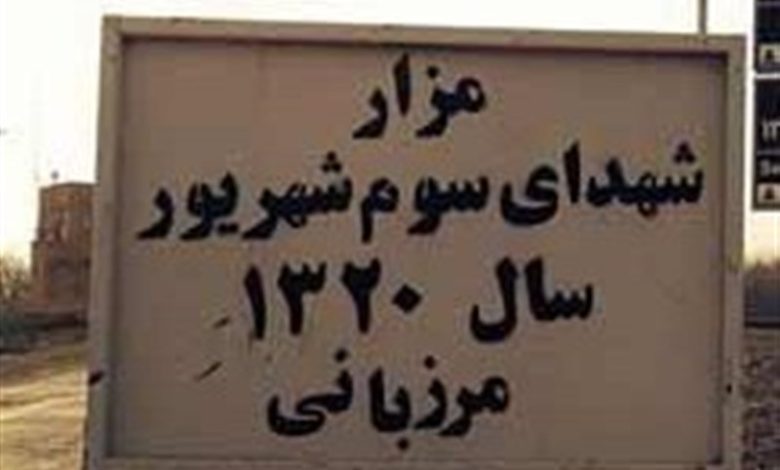 مزار
شهدای سوم شهریور
سال ۱۳۲۰
مرزبانی